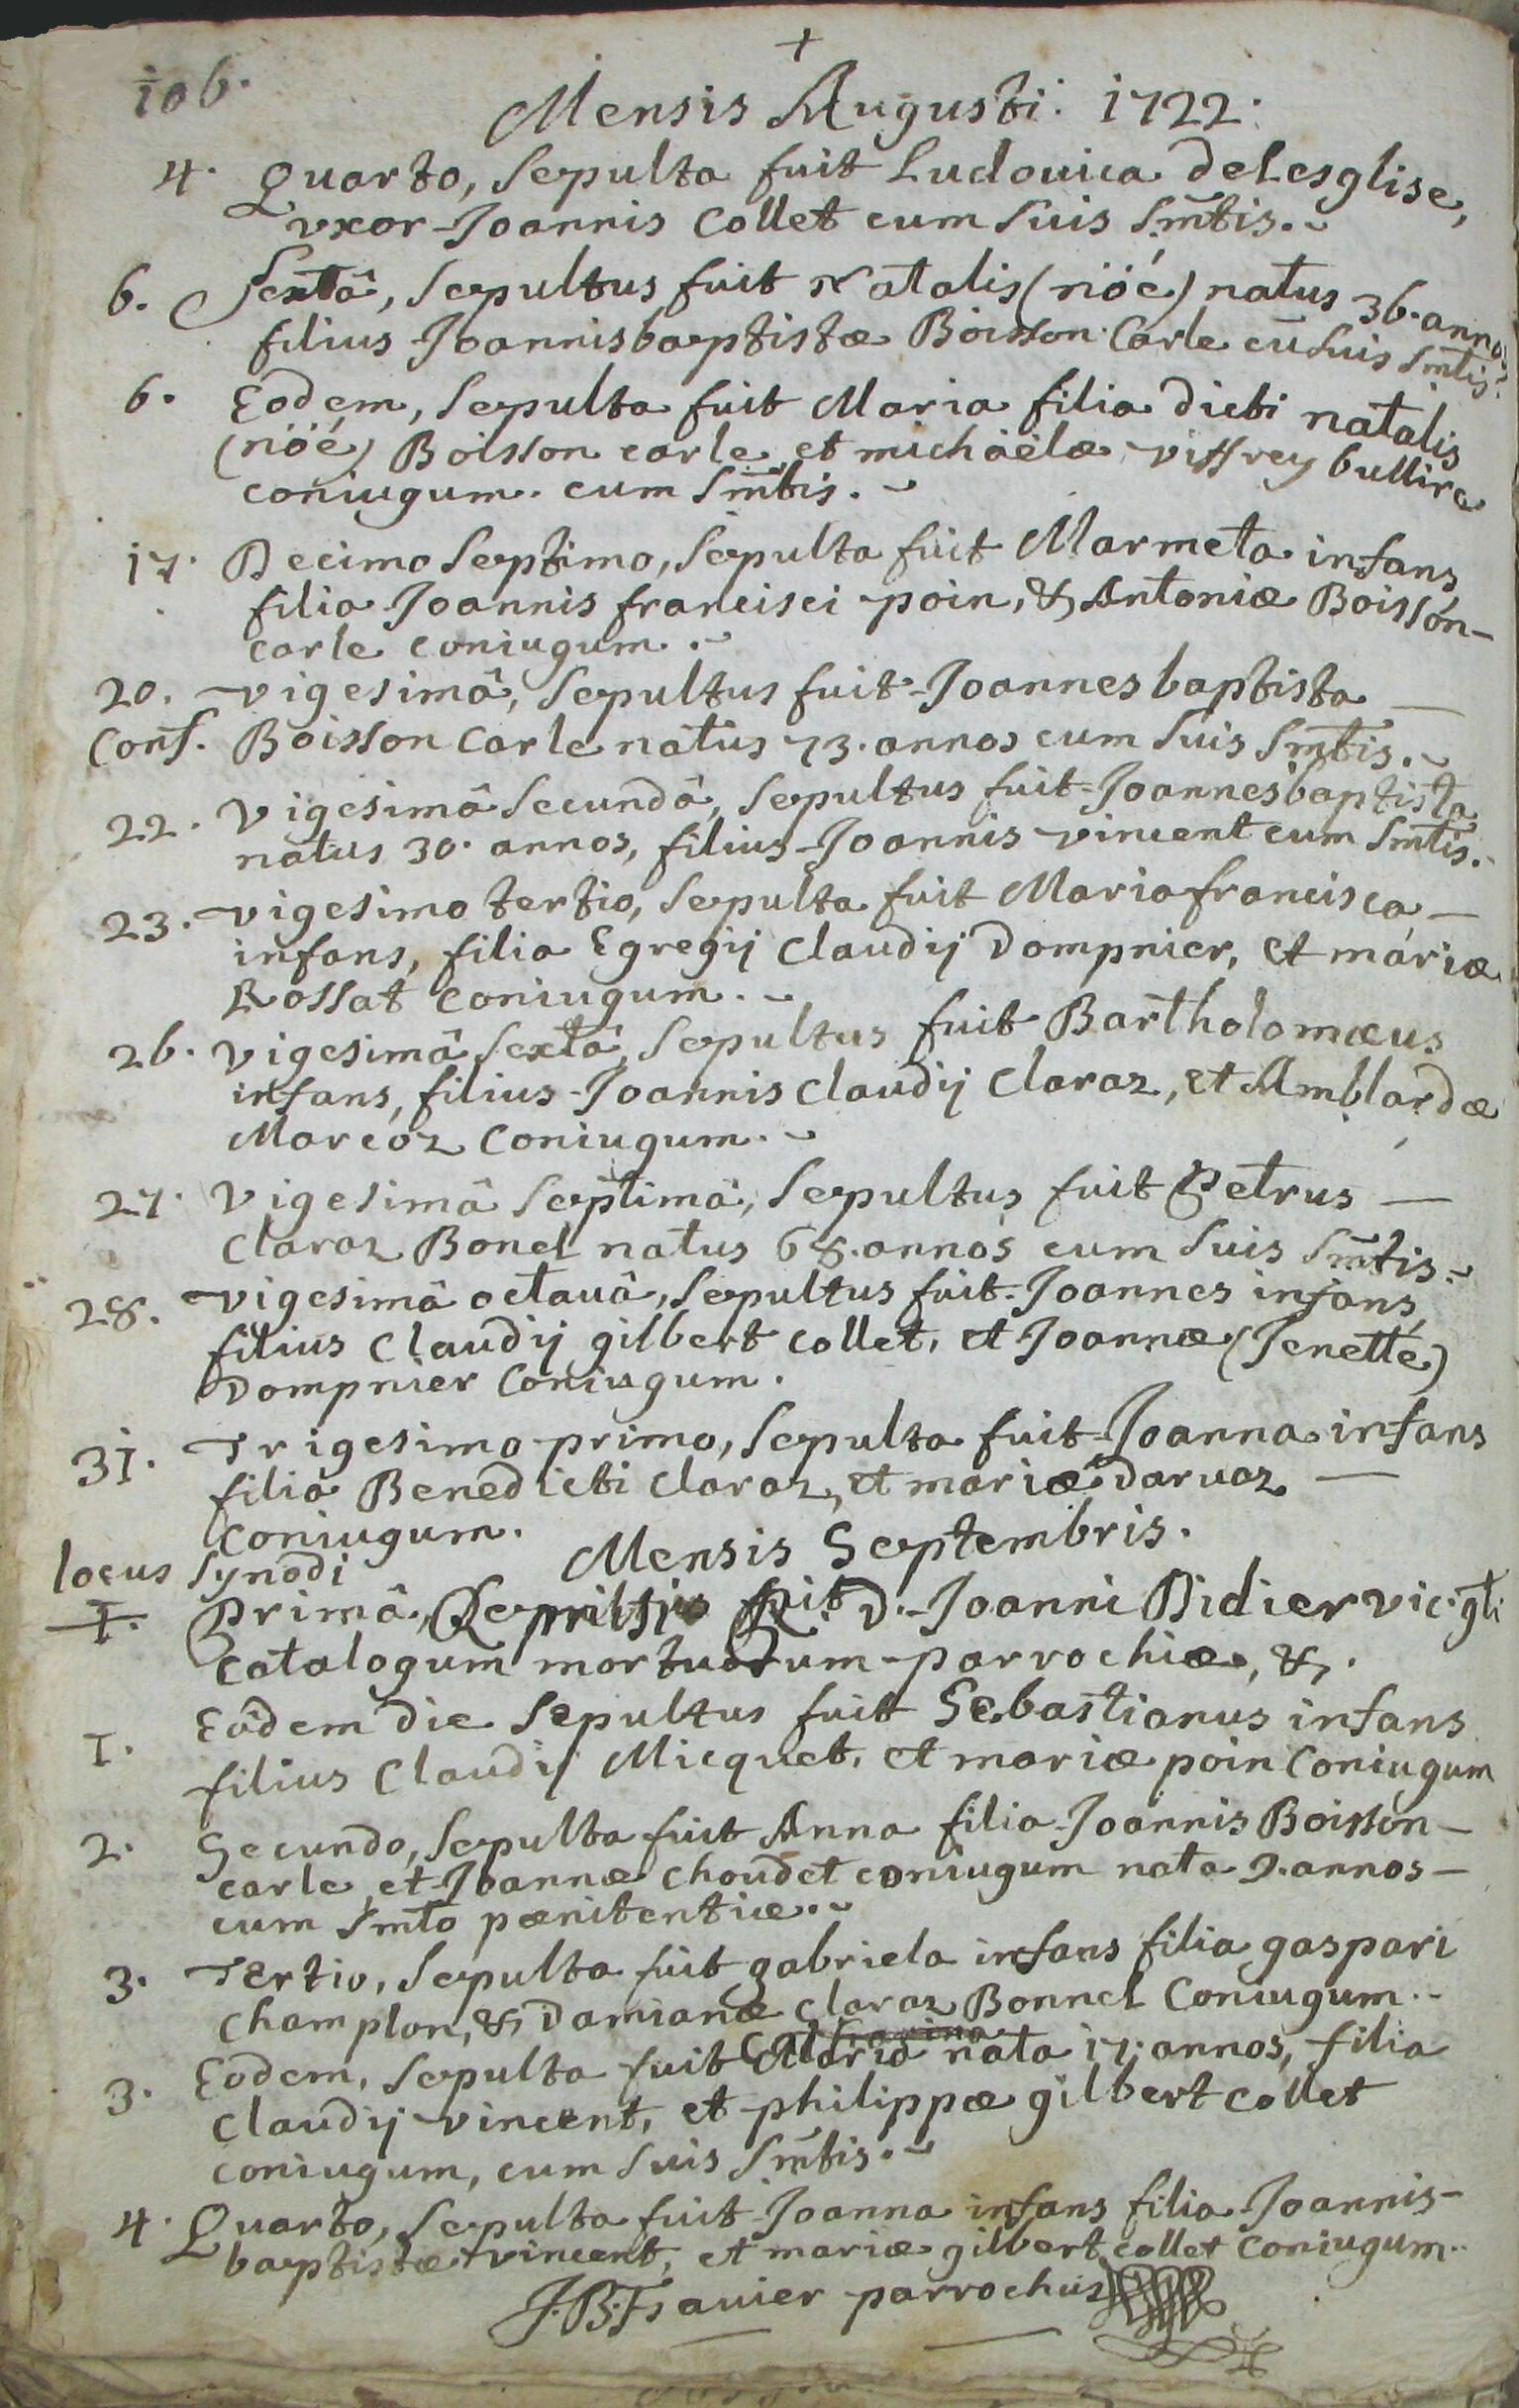 +
106.
Mensis Augusti. 1722.
4. Quarto, sepulta fuit Ludouica delesglise,
vxor Joannis Collet cum suis Smtis.
6. Sextâ, sepultus fuit Natalis (nöé) natus 36. annos
filius Joannisbaptistæ Boisson Carle cū suis Smtis.
6. Eodem, sepulta fuit Maria filia dicti natalis
(nöé) Boisson carle et michäélæ viffrey bullire
coniugum. cum Smtis.
17. Decimo septimo, sepulta fuit Marmeta infans
filia Joannis francisci poin, & Antoniæ Boisson-
carle coniugum.
20. vigesimâ, sepultus fuit Joannes baptista
Conf. Boisson Carle natus 73. annos cum suis Smtis.
22. Vigesimâ secundâ, sepultus fuit Joannesbaptista
natus 30. annos, filius Joannis vincent cum Smtis.
23. vigesimo tertio, sepulta fuit Mariafrancisca
infans, filia Egregij Claudij Dompnier, et mariæ
Rossat coniugum.
26. vigesimâ sextâ, sepultus fuit Bartholomæus
infans, filius Joannis Claudij Claraz, et Amblardæ
Marcoz Coniugum.
27. Vigesimâ septimâ, sepultus fuit Petrus
Claraz Bonel natus 68. annos cum suis Smtis.
28. vigesimâ octauâ, sepultus fuit Joannes infans,
filius Claudij gilbert collet, et Joannæ (Jenette)
Dompnier Coniugum.
31. Trigesimo primo, sepulta fuit Joanna infans
filia Benedicti Claraz, et mariæ Daruaz
Coniugum.
Mensis Septembris.
locus synodi
I. Primâ, fuit R. D. Joanni Didier vic. gli
Catalogum mortuorum parrochiæ, &.
I. Eâdem die sepultus fuit Sebastianus infans
filius Claudij Micquet, et mariæ poin Coniugum
2. Secundo, sepulta fuit Anna filia Joannis Boisson-
carle, et Joannæ Choudet coniugum nata 9. annos
cum Smto pænitentiæ.
3. Tertio, sepulta fuit gabriela infans filia gaspari
Champlon, & Damianæ Claraz Bonnel Coniugum.
Catharina
3. Eodem, sepulta fuit Maria nata 17. annos, filia
Claudij vincent, et philippæ gilbert collet
coniugum, cum suis Smtis.
4. Quarto, sepulta fuit Joanna infans filia Joannis-
baptistæ vincent, et mariæ gilbert collet Coniugum.
J. B. Frauier parrochus